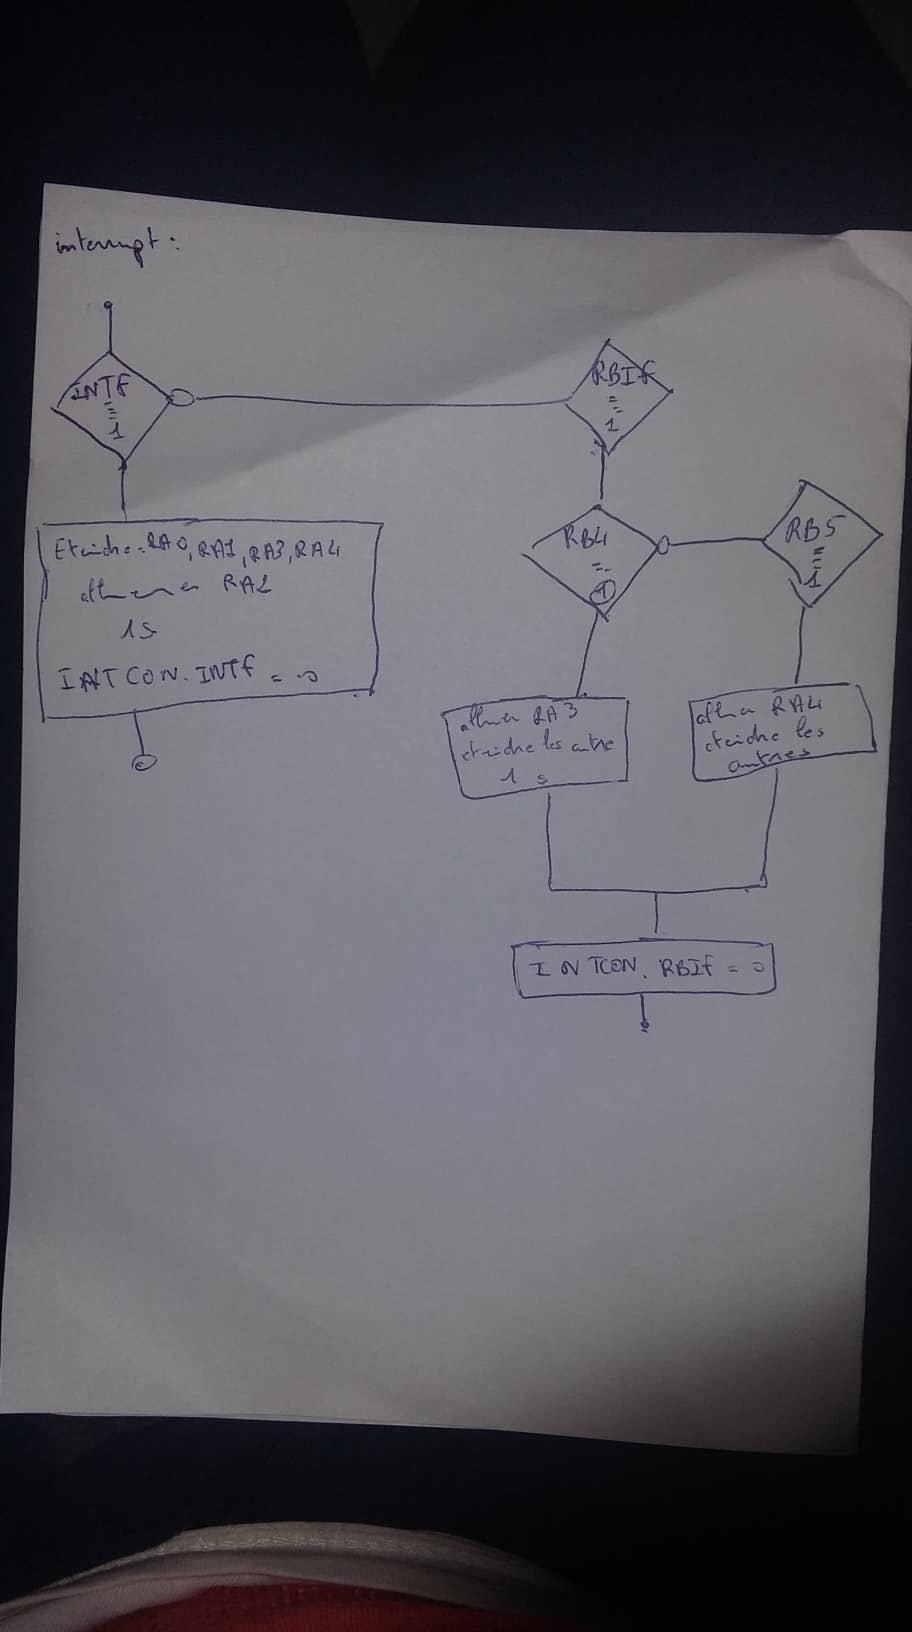 interrupt :
INTF
=
1
RBIF
=
1
Eteindre : RA0, RA1, RA3, RA4
allumer RA2
1s
INTCON. INTF = 0
RB4
=
1
RB5
=
1
allumer RA3
eteindre les autre
1 s
allumer RA4
eteindre les
autres
INTCON. RBIF = 0